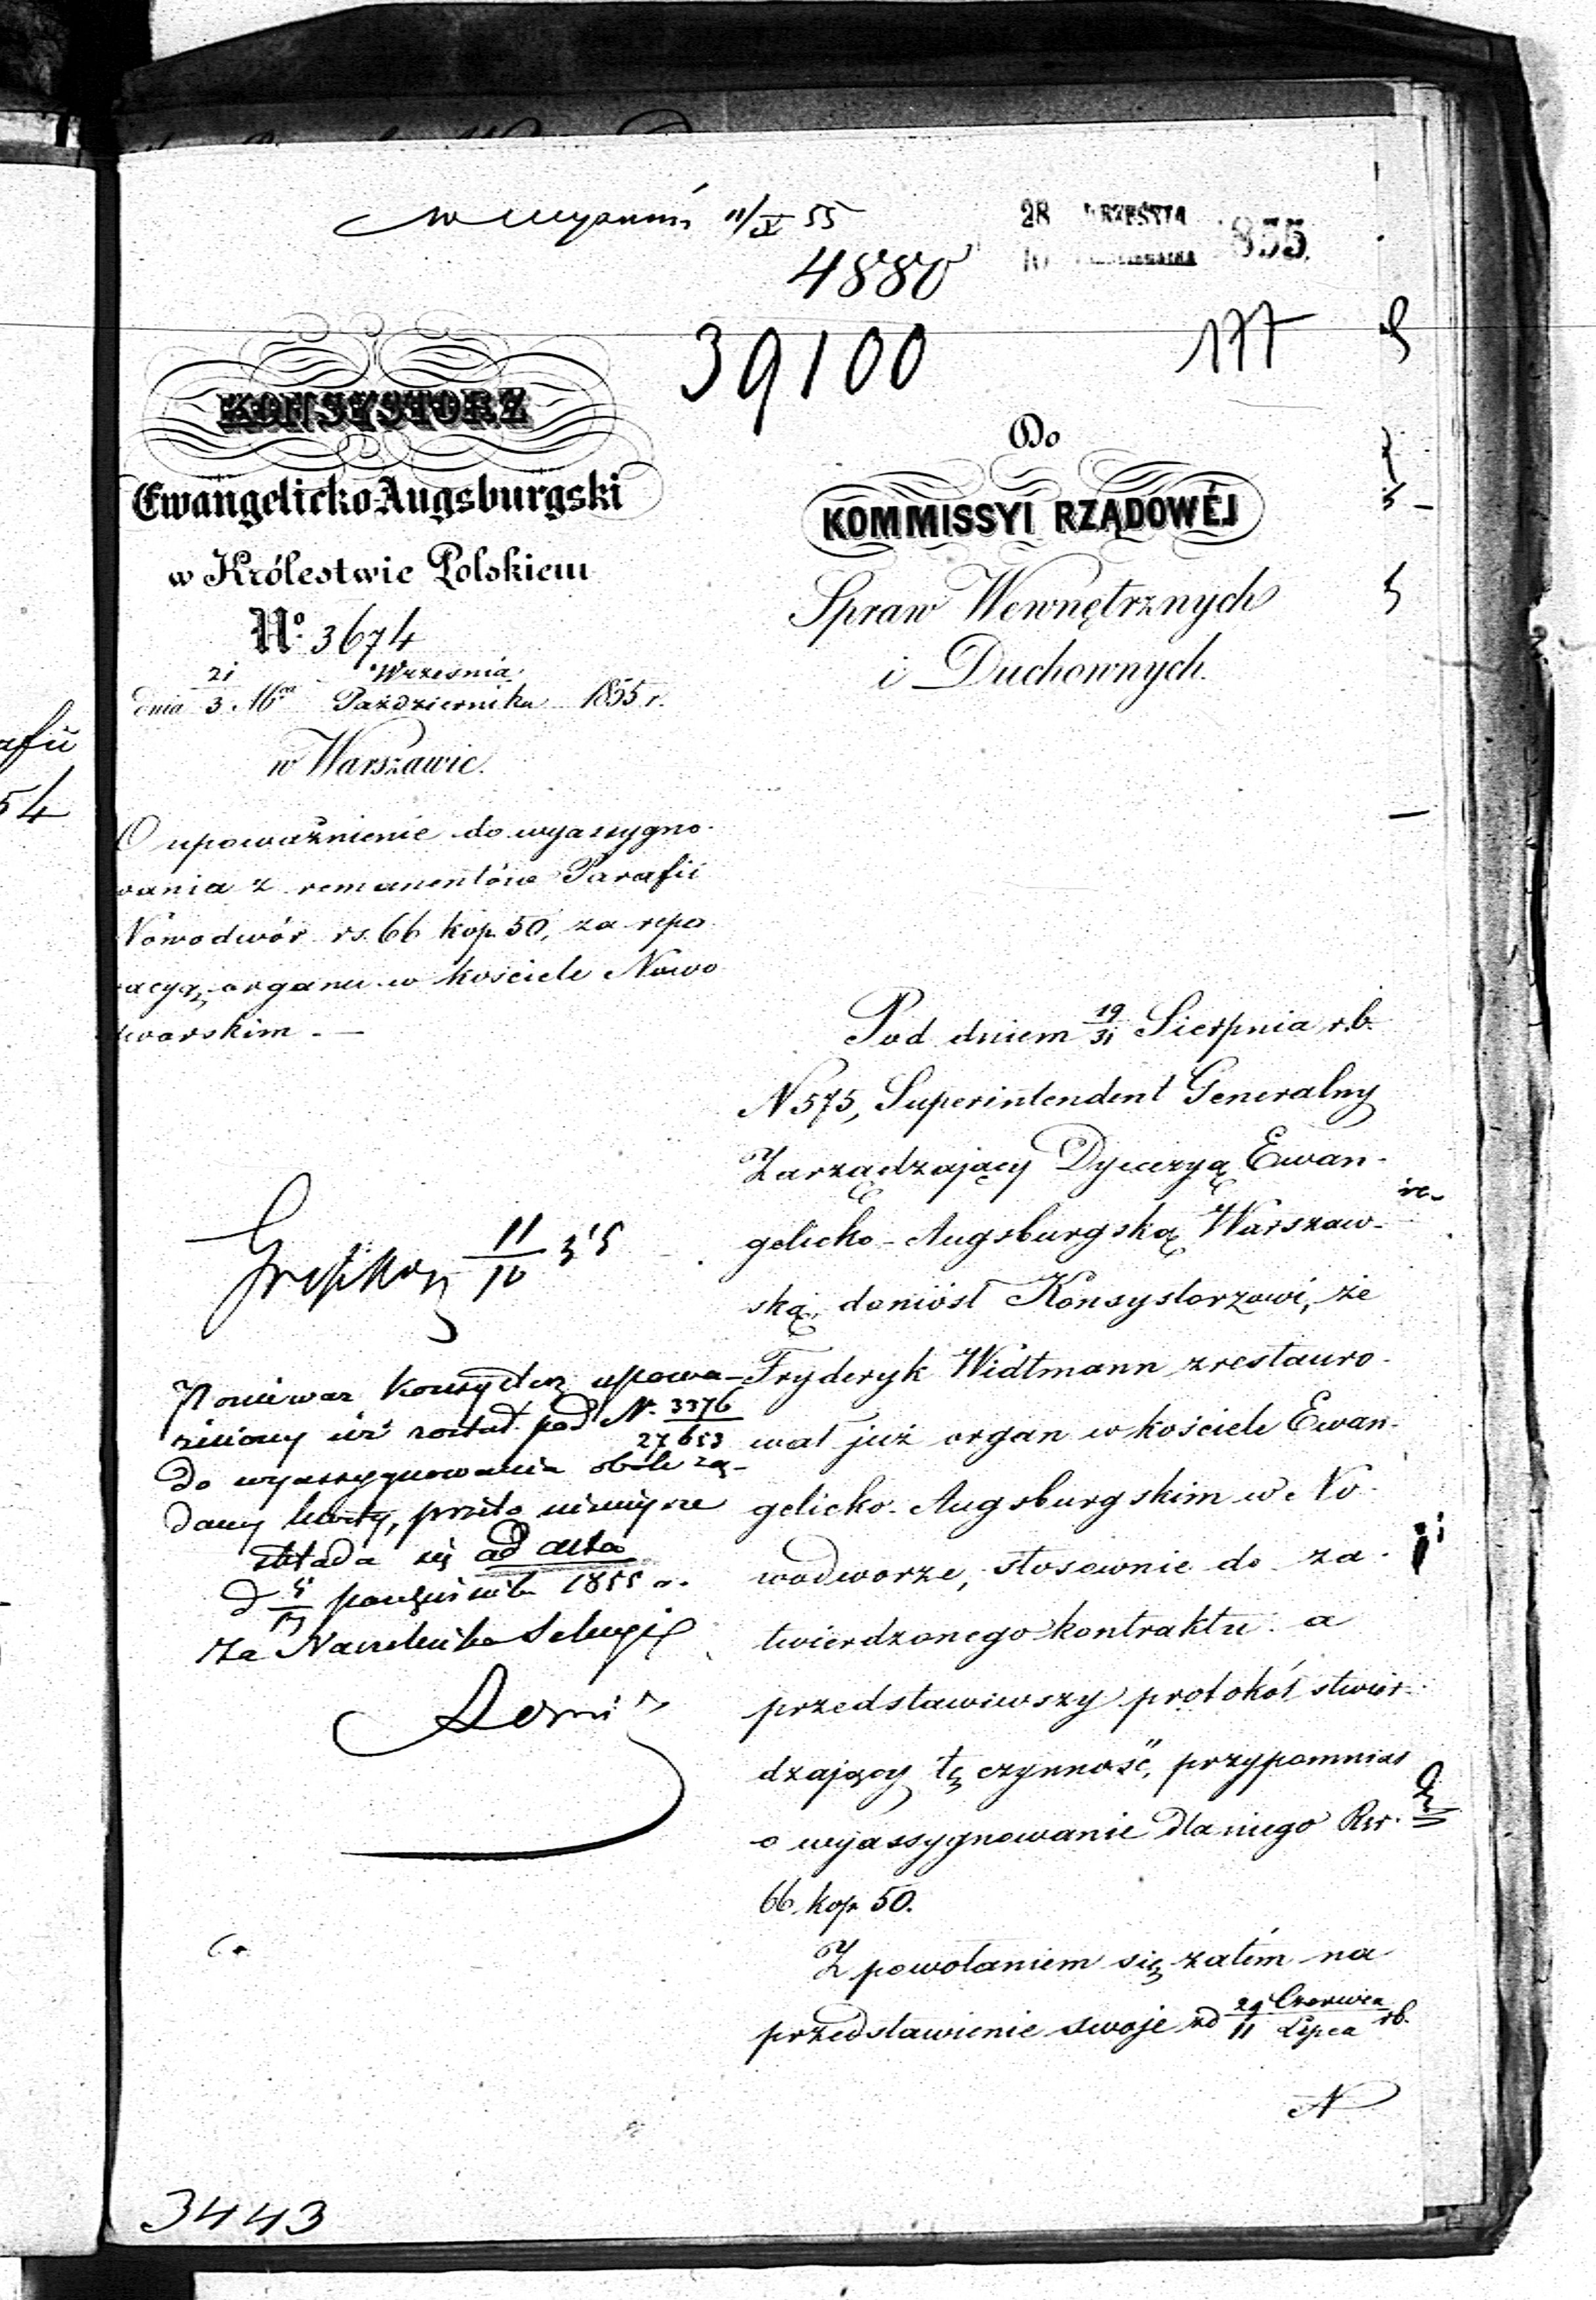 11/X 55
4880
28 WRZEŚNIA
10 PAŹDZIERNIKA 1855.
39100
177
KONSYSTORZ
Ewangelicko-Augsburgski
w Królestwie Polskiem
No. 3674
21 Września
dnia 3 Mca Października 1855 r.
w Warszawie.
O upoważnienie do wyassygno-
wania z remanentów Parafii
Nowodwór rs. 66 kop. 50, za repa
racyą organu w kościele Nowo
dworskim. —
11/10 55
Ponieważ Konsystorz upowa-
żniony już został pod N. 3376/27653
do wyassygnowania obok żą-
danej kwoty, przeto niniejsze
składa się ad acta
d 5/17 października 1855 r.
Za Naczelnika Sekcyi
3443
Do
KOMMISSYI RZĄDOWÉJ
Spraw Wewnętrznych
i Duchownych.
Pod dniem 19/31 Sierpnia r.b.
N 575, Superintendent Generalny
Zarządzający Dyecezyą Ewan-
gelicko-Augsburgską Warszaw-
ską, doniósł Konsystorzowi, że
Fryderyk Widtmann zrestauro-
wał już organ w kościele Ewan-
gelicko-Augsburgskim w No-
wodworze, stosownie do za-
twierdzonego kontraktu a
przedstawiwszy protokół stwier-
dzający tę czynność, przypomniał
o wyassygnowanie dla niego Rsr.
66 kop 50.
Z powołaniem się zatém na
przedstawienie swoje z d 29 Czerwca/11 Lipca r.b.
N
afii
54